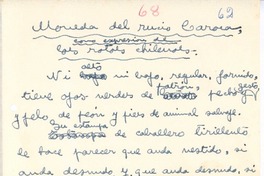 68 62
Moneda del rucio Caroca,
cono expresión de
los rotos chilenos.
alto
Ni bajo ni bajo, regular, fornido,
patrón, gesto
tiene ojos verdes de pecho
y pelo de peón y pies de animal salvaje.
Su estampa
de caballero tirillento
le hace parecer que anda vestido, si
anda desnudo y que anda desnudo, si